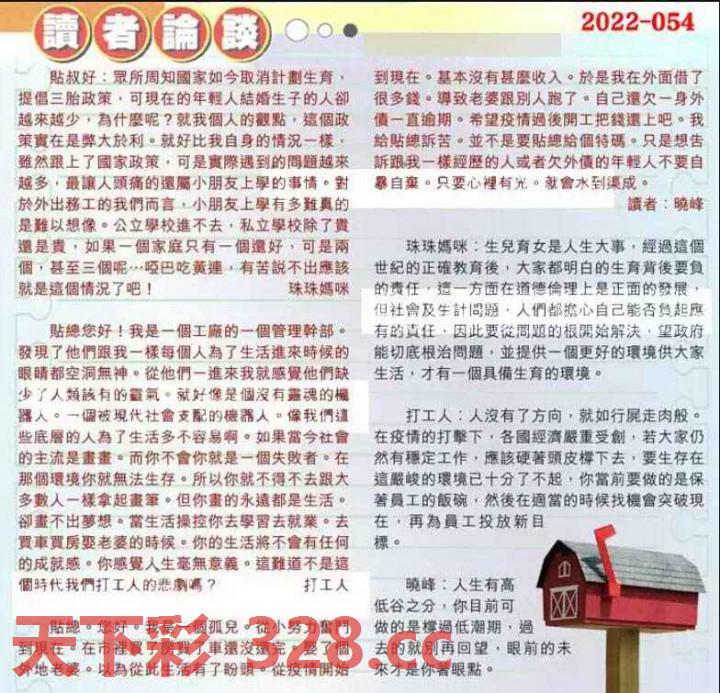 讀者論談
2022-054
貼叔好：眾所周知國家如今取消計劃生育，
提倡三胎政策，可現在的年輕人結婚生子的人卻
越來越少，為什麼呢？就我個人的觀點，這個政
策實在是弊大於利。就好比我自身的情況一樣，
雖然跟上了國家政策，可是實際遇到的問題越來
越多，最讓人頭痛的還屬小朋友上學的事情。對
於外出務工的我們而言，小朋友上學有多難真的
是難以想像。公立學校進不去，私立學校除了貴
還是貴，如果一個家庭只有一個還好，可是兩
個，甚至三個呢…啞巴吃黃連，有苦説不出應該
就是這個情況了吧！ 珠珠媽咪
貼總您好！我是一個工廠的一個管理幹部。
發現了他們跟我一樣每個人為了生活進來時候的
眼睛都空洞無神。從他們一進來我就感覺他們缺
少了人類該有的靈氣。就好像是個沒有靈魂的機
器人。一個被現代社會支配的機器人。像我們這
些底層的人為了生活多不容易啊。如果當今社會
的主流是畫畫。而你不會你就是一個失敗者。在
那個環境你就無法生存。所以你就不得不去跟大
多數人一樣拿起畫筆。但你畫的永遠都是生活。
卻畫不出夢想。當生活操控你去學習去就業。去
買車買房娶老婆的時候。你的生活將不會有任何
的成就感。你感覺人生毫無意義。這難道不是這
個時代我們打工人的悲劇嗎？ 打工人
貼總。您好。我是一個孤兒。從小努力奮鬥
到現在。在市裡買了房買了車還沒還完。娶了個
外地老婆。以為從此生活有了盼頭。從疫情開始
到現在。基本沒有甚麼收入。於是我在外面借了
很多錢。導致老婆跟別人跑了。自己還欠一身外
債一直逾期。希望疫情過後開工把錢還上吧。我
給貼總訴苦。並不是要貼總給個特碼。只是想告
訴跟我一樣經歷的人或者欠外債的年輕人不要自
暴自棄。只要心裡有光。就會水到渠成。
讀者：曉峰
珠珠媽咪：生兒育女是人生大事，經過這個
世紀的正確教育後，大家都明白的生育背後要負
的責任，這一方面在道德倫理上是正面的發展，
但社會及生計問題，人們都擔心自己能否負起應
有的責任，因此要從問題的根開始解決，望政府
能切底根治問題，並提供一個更好的環境供大家
生活，才有一個具備生育的環境。
打工人：人沒有了方向，就如行屍走肉般。
在疫情的打擊下，各國經濟嚴重受創，若大家仍
然有穩定工作，應該硬著頭皮撐下去，要生存在
這嚴峻的環境已十分了不起，你當前要做的是保
著員工的飯碗，然後在適當的時候找機會突破現
在，再為員工投放新目
標。
曉峰：人生有高
低谷之分，你目前可
做的是樑過低潮期，過
去的就別再回望，眼前的未
來才是你著眼點。
天下彩 328.cc